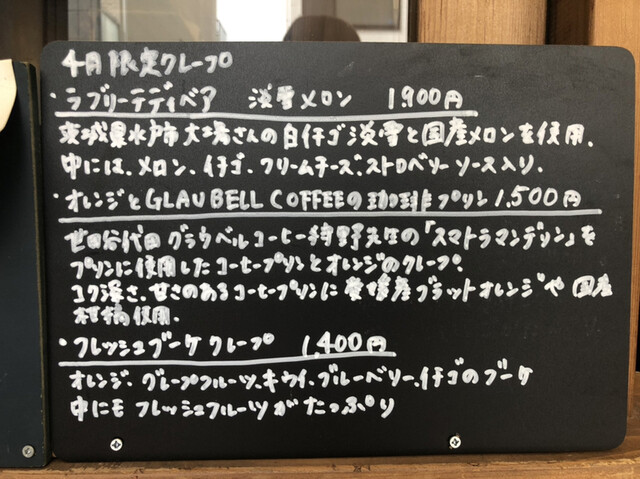 4月限定クレープ
・ラブリーテディベア 淡雪メロン 1,900円
茨城県水戸市大場さんの白イチゴ淡雪と国産メロンを使用.
中には、メロン、イチゴ、クリームチーズ、ストロベリーソース入り.
・オレンジとGLAUBELL COFFEEの珈琲プリン1.500円
世田谷代田グラウベルコーヒー狩野夫妻の「スマトラマンデリン」を
プリンに使用したコーヒープリンとオレンジのクレープ.
コク深さ、甘さのあるコーヒープリンに愛媛産ブラッドオレンジや国産
柑橘使用.
・フレッシュブーケクレープ 1,400円
オレンジ、グレープフルーツ、キウイ、ブルーベリー、イチゴのブーケ
中にモフレッシュフルーツがたっぷり